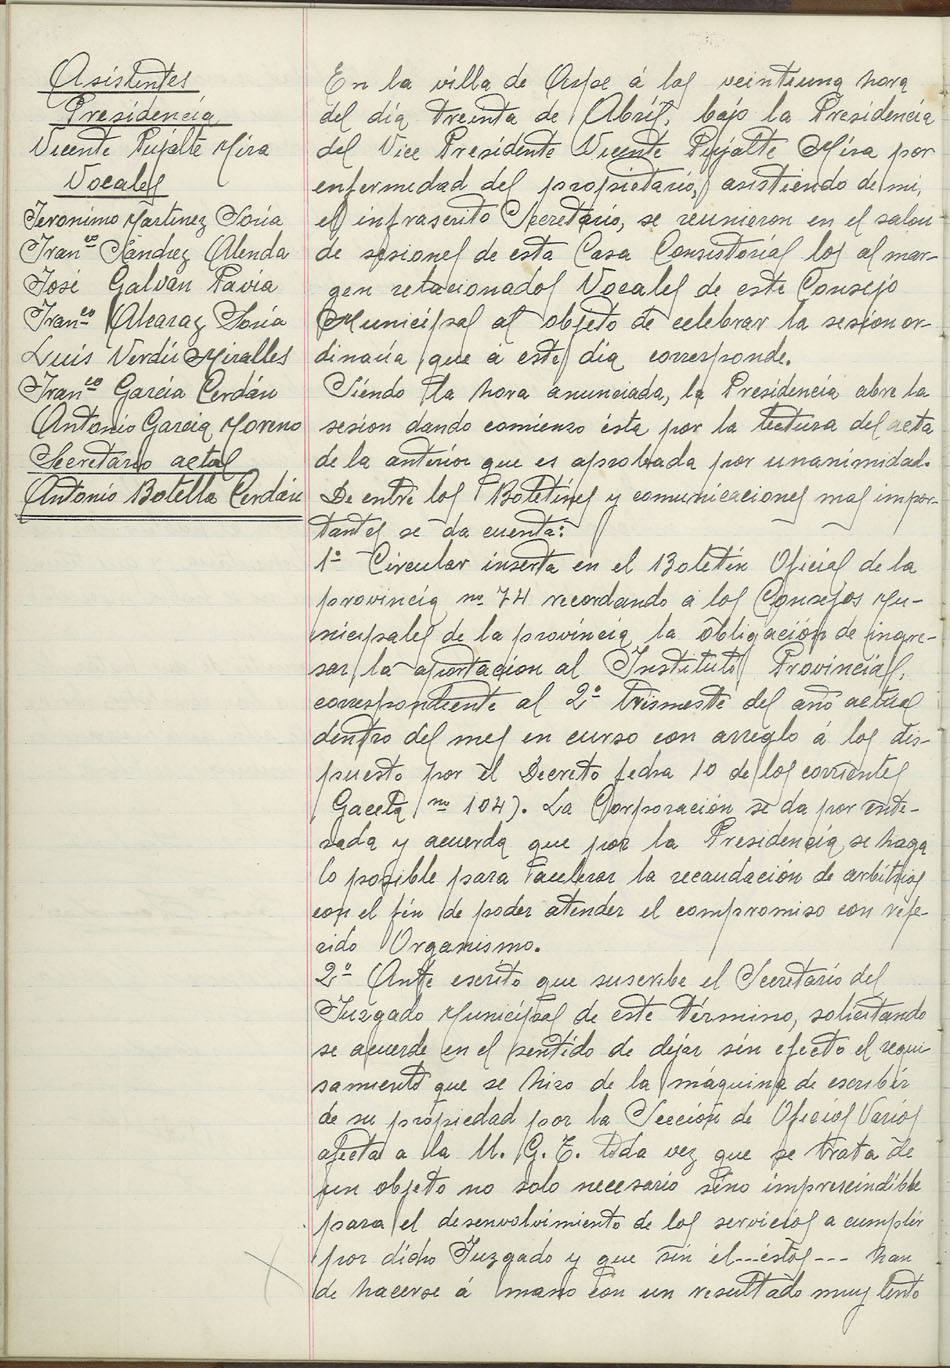 Asistentes
Presidencia
Vicente Pujalte Mira
Vocales
Jeronimo Martinez Soria
Franco Sanchez Alenda
José Galvañ Pavia
Franco Alcaraz Soria
Luis Verdú Miralles
Franco Garcia Cerdán
Antonio Garcia Moreno
Secretario actal
Antonio Botella Cerdán
En la villa de Aspe á las veintiuna hora
del dia treinta de Abril, bajo la Presidencia
del Vice Presidente Vicente Pujalte Mira por
enfermedad del propietario, asistiendo de mi,
el infrascrito Secretario, se reunieron en el salon
de sesiones de esta Casa Consistorial los al mar-
gen relacionados Vocales de este Consejo
Municipal al objeto de celebrar la sesion or-
dinaria que á este dia corresponde.
Siendo la hora anunciada, la Presidencia abre la
sesion dando comienzo ésta por la lectura del acta
de la anterior que es aprobada por unanimidad.
De entre los Boletines y comunicaciones mas impor-
tantes se da cuenta:
1º Circular inserta en el Boletin Oficial de la
provincia nº 74 recordando á los Consejos Mu-
nicipales de la provincia la obligación de ingre-
sar la aportación al Instituto Provincial,
correspondiente al 2º trismestre del año actual
dentro del mes en curso con arreglo á los dis-
puesto por el Decreto fecha 10 de los corrientes
Gaceta nº 104). La Corporación se da por ente-
rada y acuerda que por la Presidencia se haga
lo posible para acelerar la recaudación de arbitrios
con el fin de poder atender el compromiso con refe-
rido Organismo.
2º Ante escrito que suscribe el Secretario del
Juzgado Municipal de este término, solicitando
se acuerde en el sentido de dejar sin efecto el requi-
samiento que se hizo de la máquina de escribir
de su propiedad por la Sección de Oficios Varios
afecta a la U. G. T. toda vez que se trata de
un objeto no solo necesario sino imprescindible
para el desenvolvimiento de los servicios a cumplir
por dicho Juzgado y que sin él---éstos--- han
de hacerse á mano con un resultado muy lento